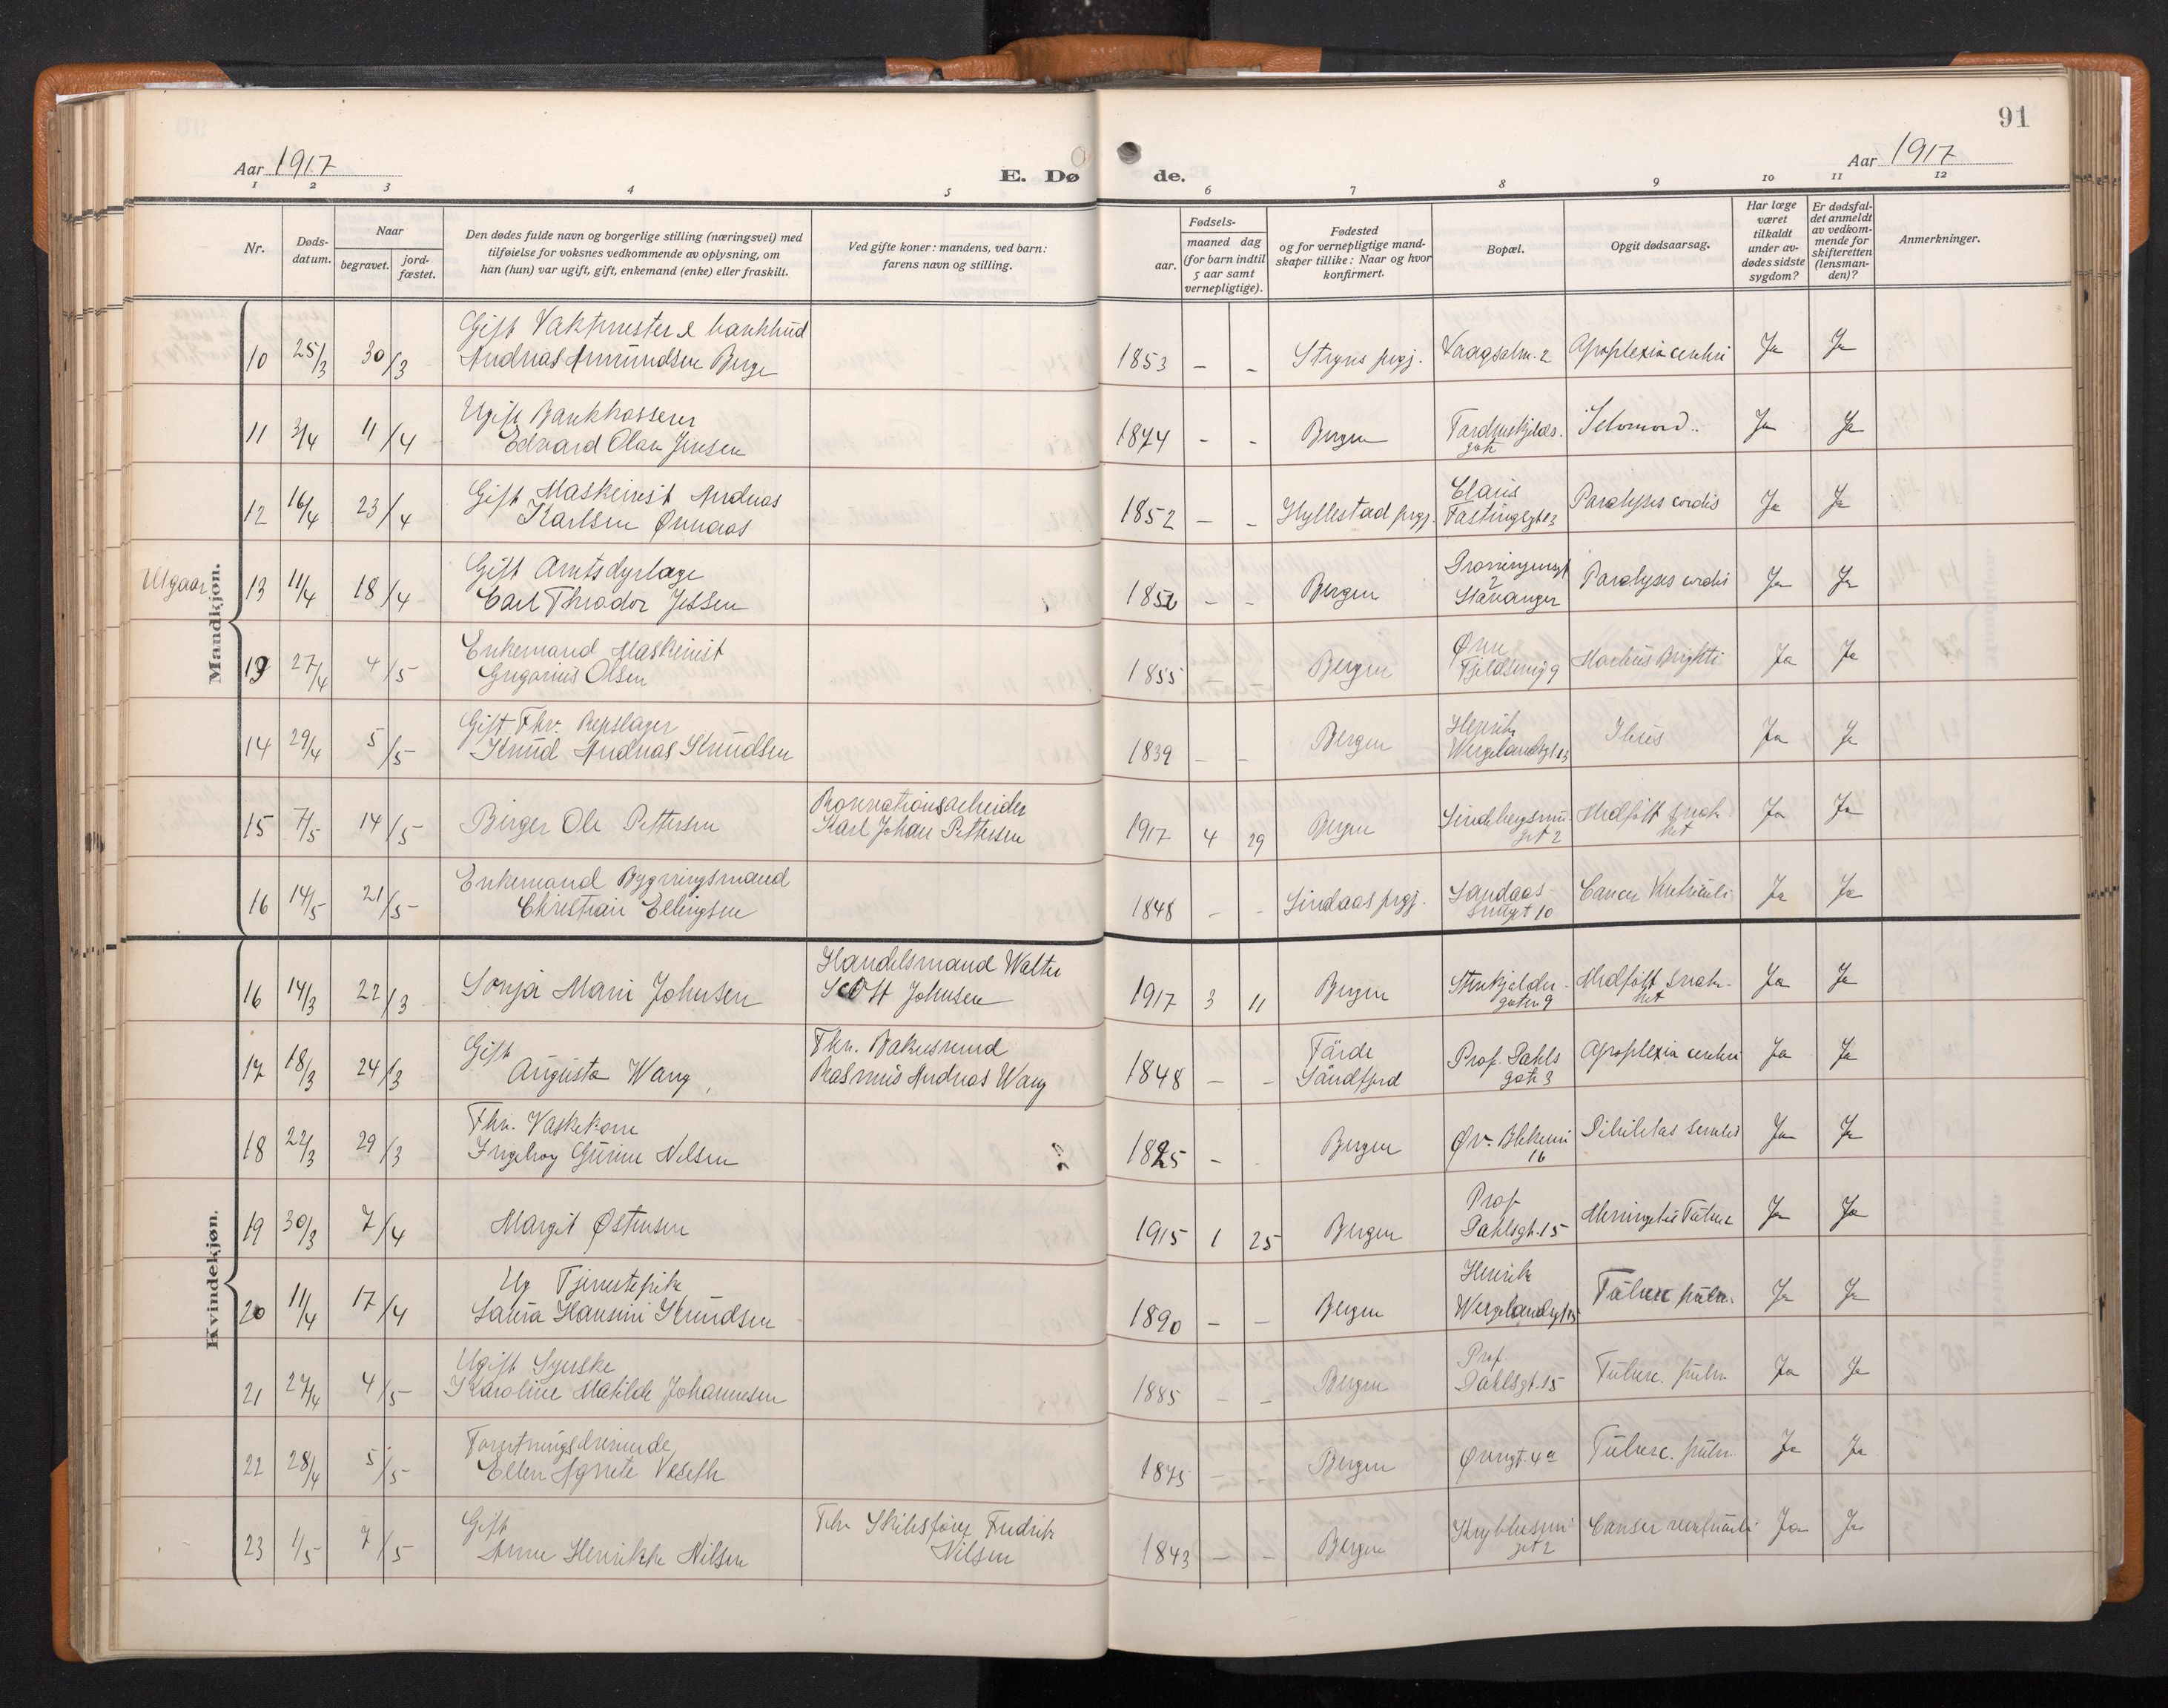 91
Aar 1917
E. Dø de.
Aar 1917
1 2 3 4 5 6 7 8 9 10 11 12
Nr.
Døds-
datum.
Naar
begravet.
jord-
fæstet.
Den dødes fulde navn og borgerlige stilling (næringsvei) med
tilføielse for voksnes vedkommende av oplysning, om
han (hun) var ugift, gift, enkemand (enke) eller fraskilt.
Ved gifte koner: mandens, ved barn:
farens navn og stilling.
Fødsels-
aar.
maaned dag
(for barn indtil
5 aar samt
vernepligtige).
Fødested
og for vernepligtige mand-
skaper tillike: Naar og hvor
konfirmert.
Bopæl.
Opgit dødsaarsag.
Har læge
været
tilkaldt
under av-
dødes sidste
sygdom?
Er dødsfal-
det anmeldt
av vedkom-
mende for
skifteretten
(lensman-
den)?
Anmerkninger.
Mandkjøn.
Gift Vaktmester
10 25/3 30/3 Andreas Amundsen Berge 1853 - - Stryns prgj. Vaagsalm. 2 Apoplexia cerebri Ja Ja
Ugift Bankkasserer
11 3/4 11/4 Edvard Olan Jensen 1874 - - Bergen Selvmord.. Ja Ja
gate
Gift Maskinist Andreas Claus
12 16/4 23/4 Karlsen Ønnaas 1852 - - Hyllestad prgj. Fastingsgt 3 Paralyses cordis Ja Ja
Utgaar
Gift Amtsdyrlæge
13 11/4 18/4 Carl Theodor Jessen 185 - - Bergen 2 Stavanger Paralyses cordis Ja Ja
Enkemand Maskinist Øvre
13 27/4 4/5 Gregorius Olsen 1855 Bergen Fjeldsmug 9 Morbus Brighti Ja Ja
Gift Fhv. Repslager Henrik
14 29/4 5/5 Knud Andreas Knudsen 1839 - - Bergen Wergelandsgt 13 Ileus Ja Ja
Renovationsarbeider
15 7/5 14/5 Birger Ole Pettersen Karl Johan Pettersen 1917 4 29 Bergen Lindebergsmu- Medfött svak- Ja Ja
get 2 het
Enkemand Bygningsmand
16 14/5 21/5 Christian Ellingsen 1848 - - Lindaas prgj. Sandaas- Cancer Ventriculi Ja Ja
smugt 10
Kvindekjøn.
Handelsmand Walter
16 14/3 22/3 Sonja Marie Johnsen Scott Johnsen 1917 3 11 Bergen Stenkjelder- Medfött svak- Ja Ja
gaten 9 het
Gift Fhv. Bakersvend Förde
17 18/3 24/3 Augusta Wang Rasmus Andreas Wang 1848 - - Söndfjord Prof. Dahls Apoplexia cerebri Ja Ja
gate 3
Fhv. Vaskekone
18 22/3 29/3 Ingeborg Gurine Nilsen 1825 - Bergen Øv. Blekevei Debilitas senilis Ja Ja
16
Prof
19 30/3 7/4 Margit Østensen 1915 1 25 Bergen Dahlsgt. 15 Meningitis Tuberc Ja Ja
Ug Tjenestepike Henrik
20 11/4 17/4 Laura Hansine Knudsen 1890 - - Bergen Wergelandsgt 13 Tuberc pulm. Ja Ja
Ugift Syerske Prof.
21 27/4 4/5 Karoline Matilde Johannesen 1885 - - Bergen Dahlsgt. 15 Tuberc. pulm Ja Ja
Forretningsdrivende
22 28/4 5/5 Ellen Agnete Veseth 1875 - - Bergen Øvregt. 4a Tuberc. pulm. Ja Ja
Gift Fhv Skibsfører Fredrik
23 1/5 7/5 Anne Henrikke Nilsen Nilsen 1843 - - Bergen Krybbesmu- Canser ventriculi Ja Ja
get 2